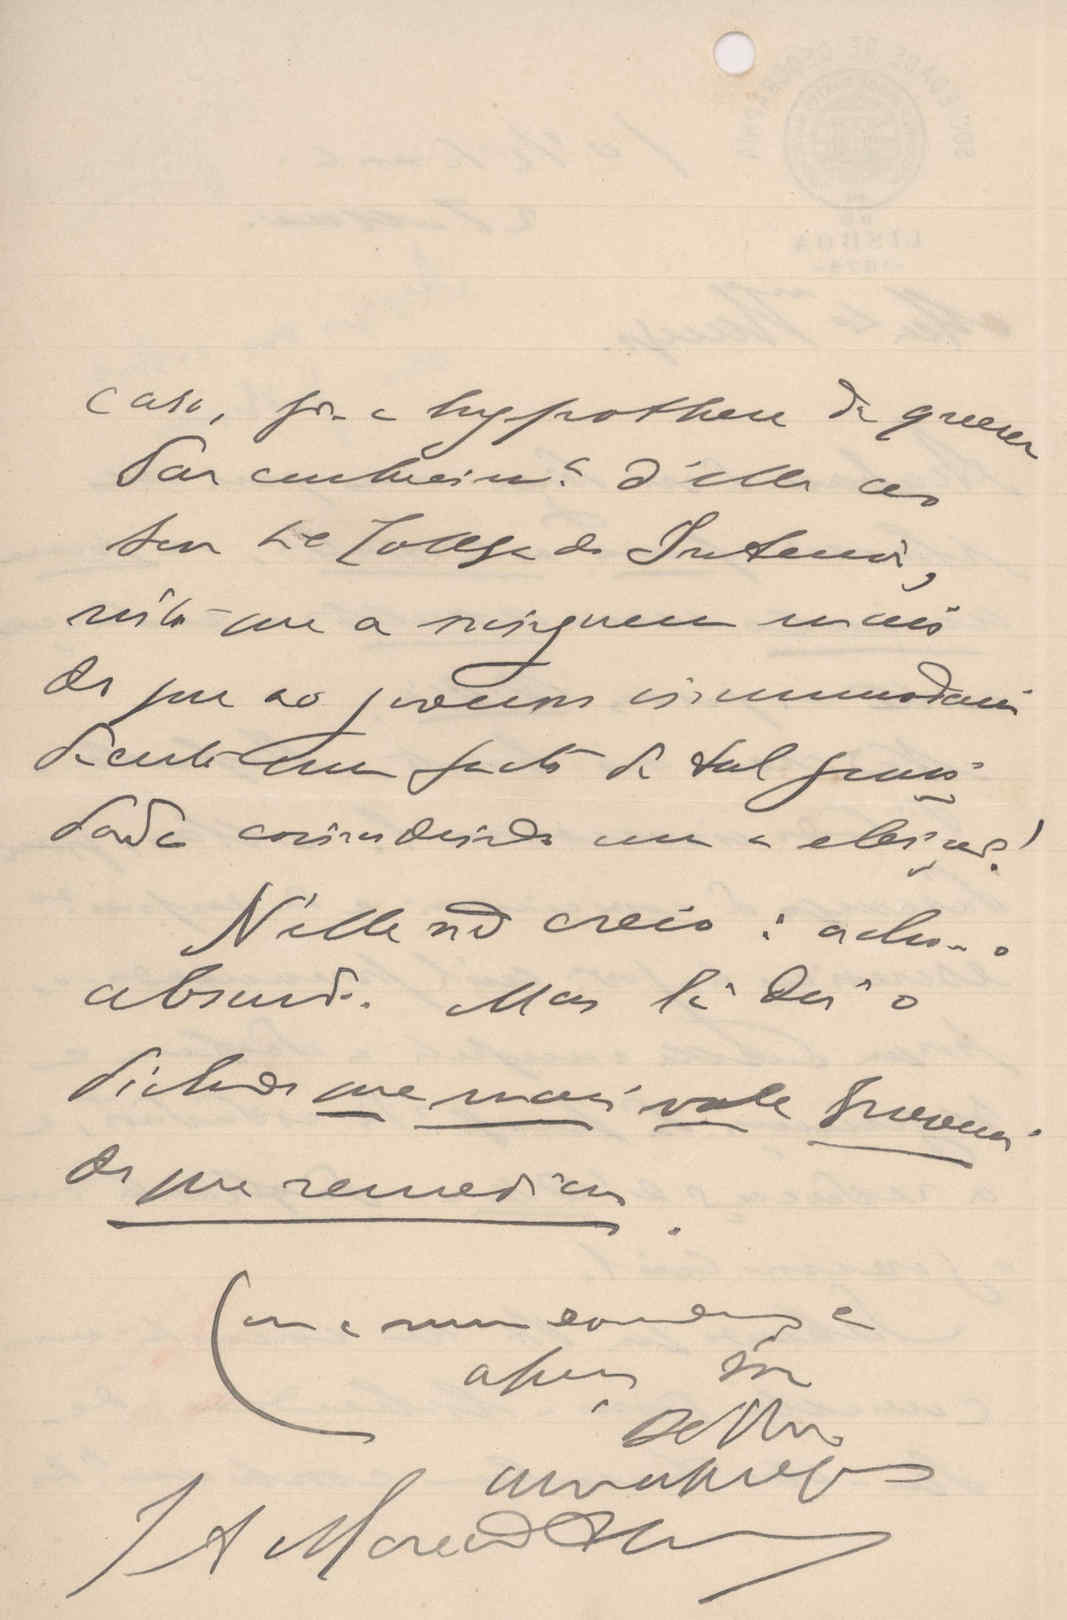 caso, por a hypothese de querer
dar conhecim.to d'elle ao
seu Collega do Interior,
visto que a ninguem mais
do que ao governo incommodaria
um facto de tal gravi-
dade coincidindo com a eleição!
N'elle não creio: acho-o
absurdo. Mas lá diz o
dictado que mais vale prevenir
do que remediar.
Com a mesma consideração e
apreço sou
De V.
amo obrigo
J A Moreira d'Alm